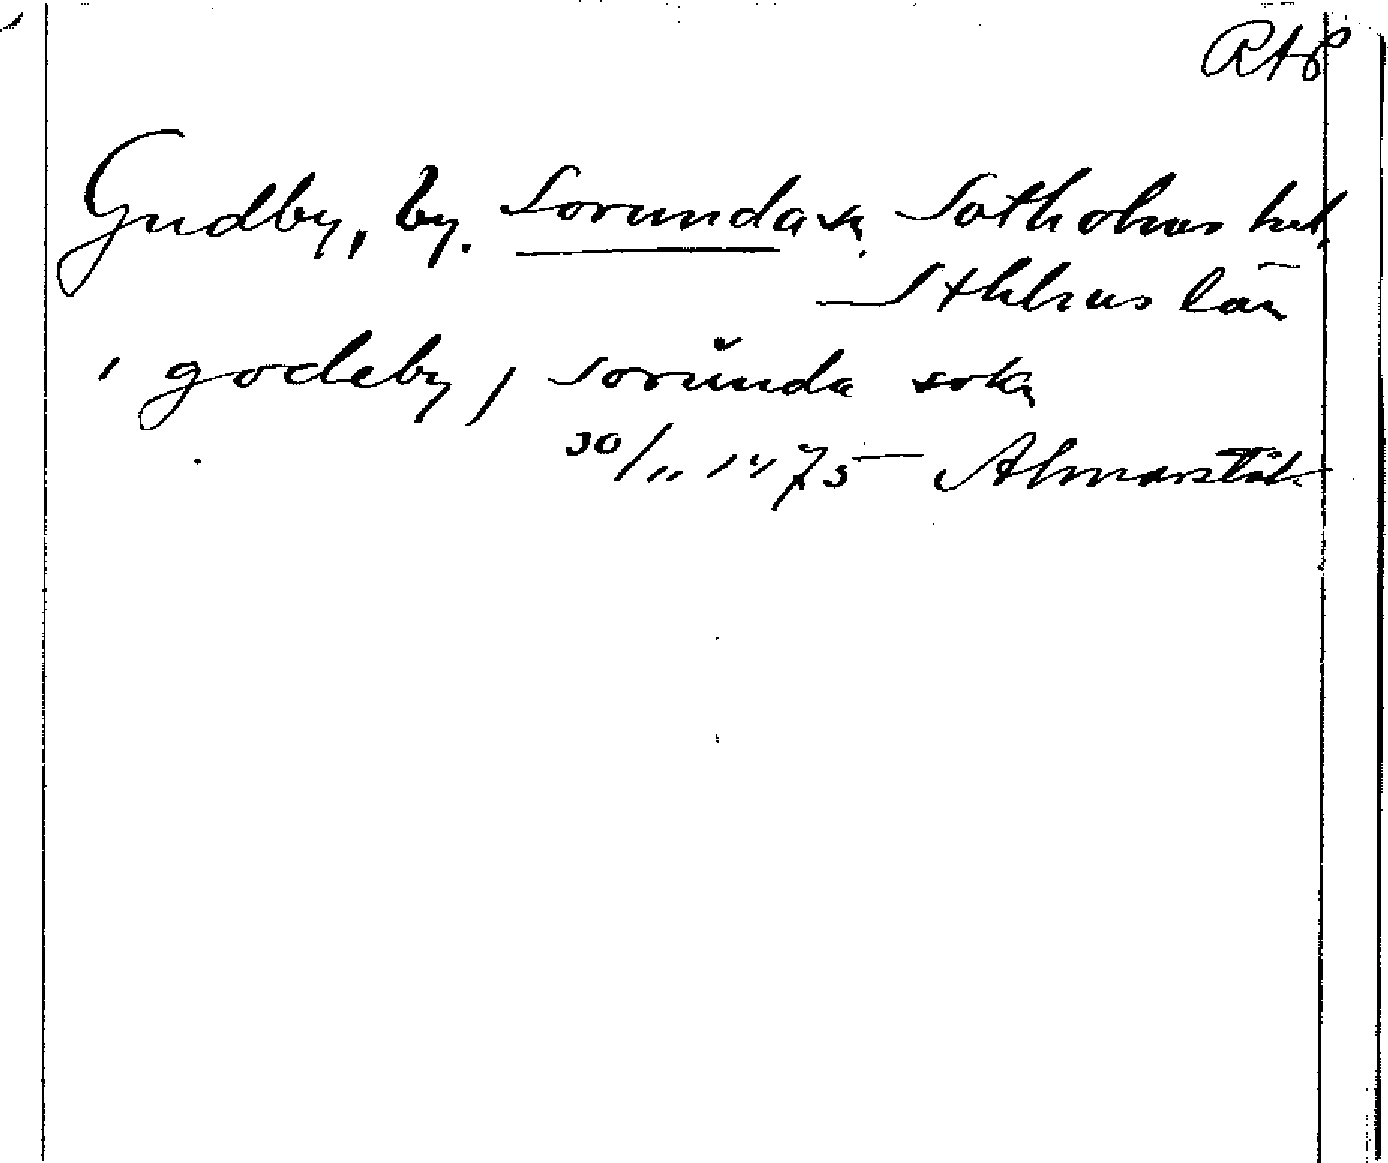 RAp
Gudby, by. Sorunda sn. Sotholms hd.
Sthlms län
i godeby i sorunda sokn
30/11 1475 Almarstäk